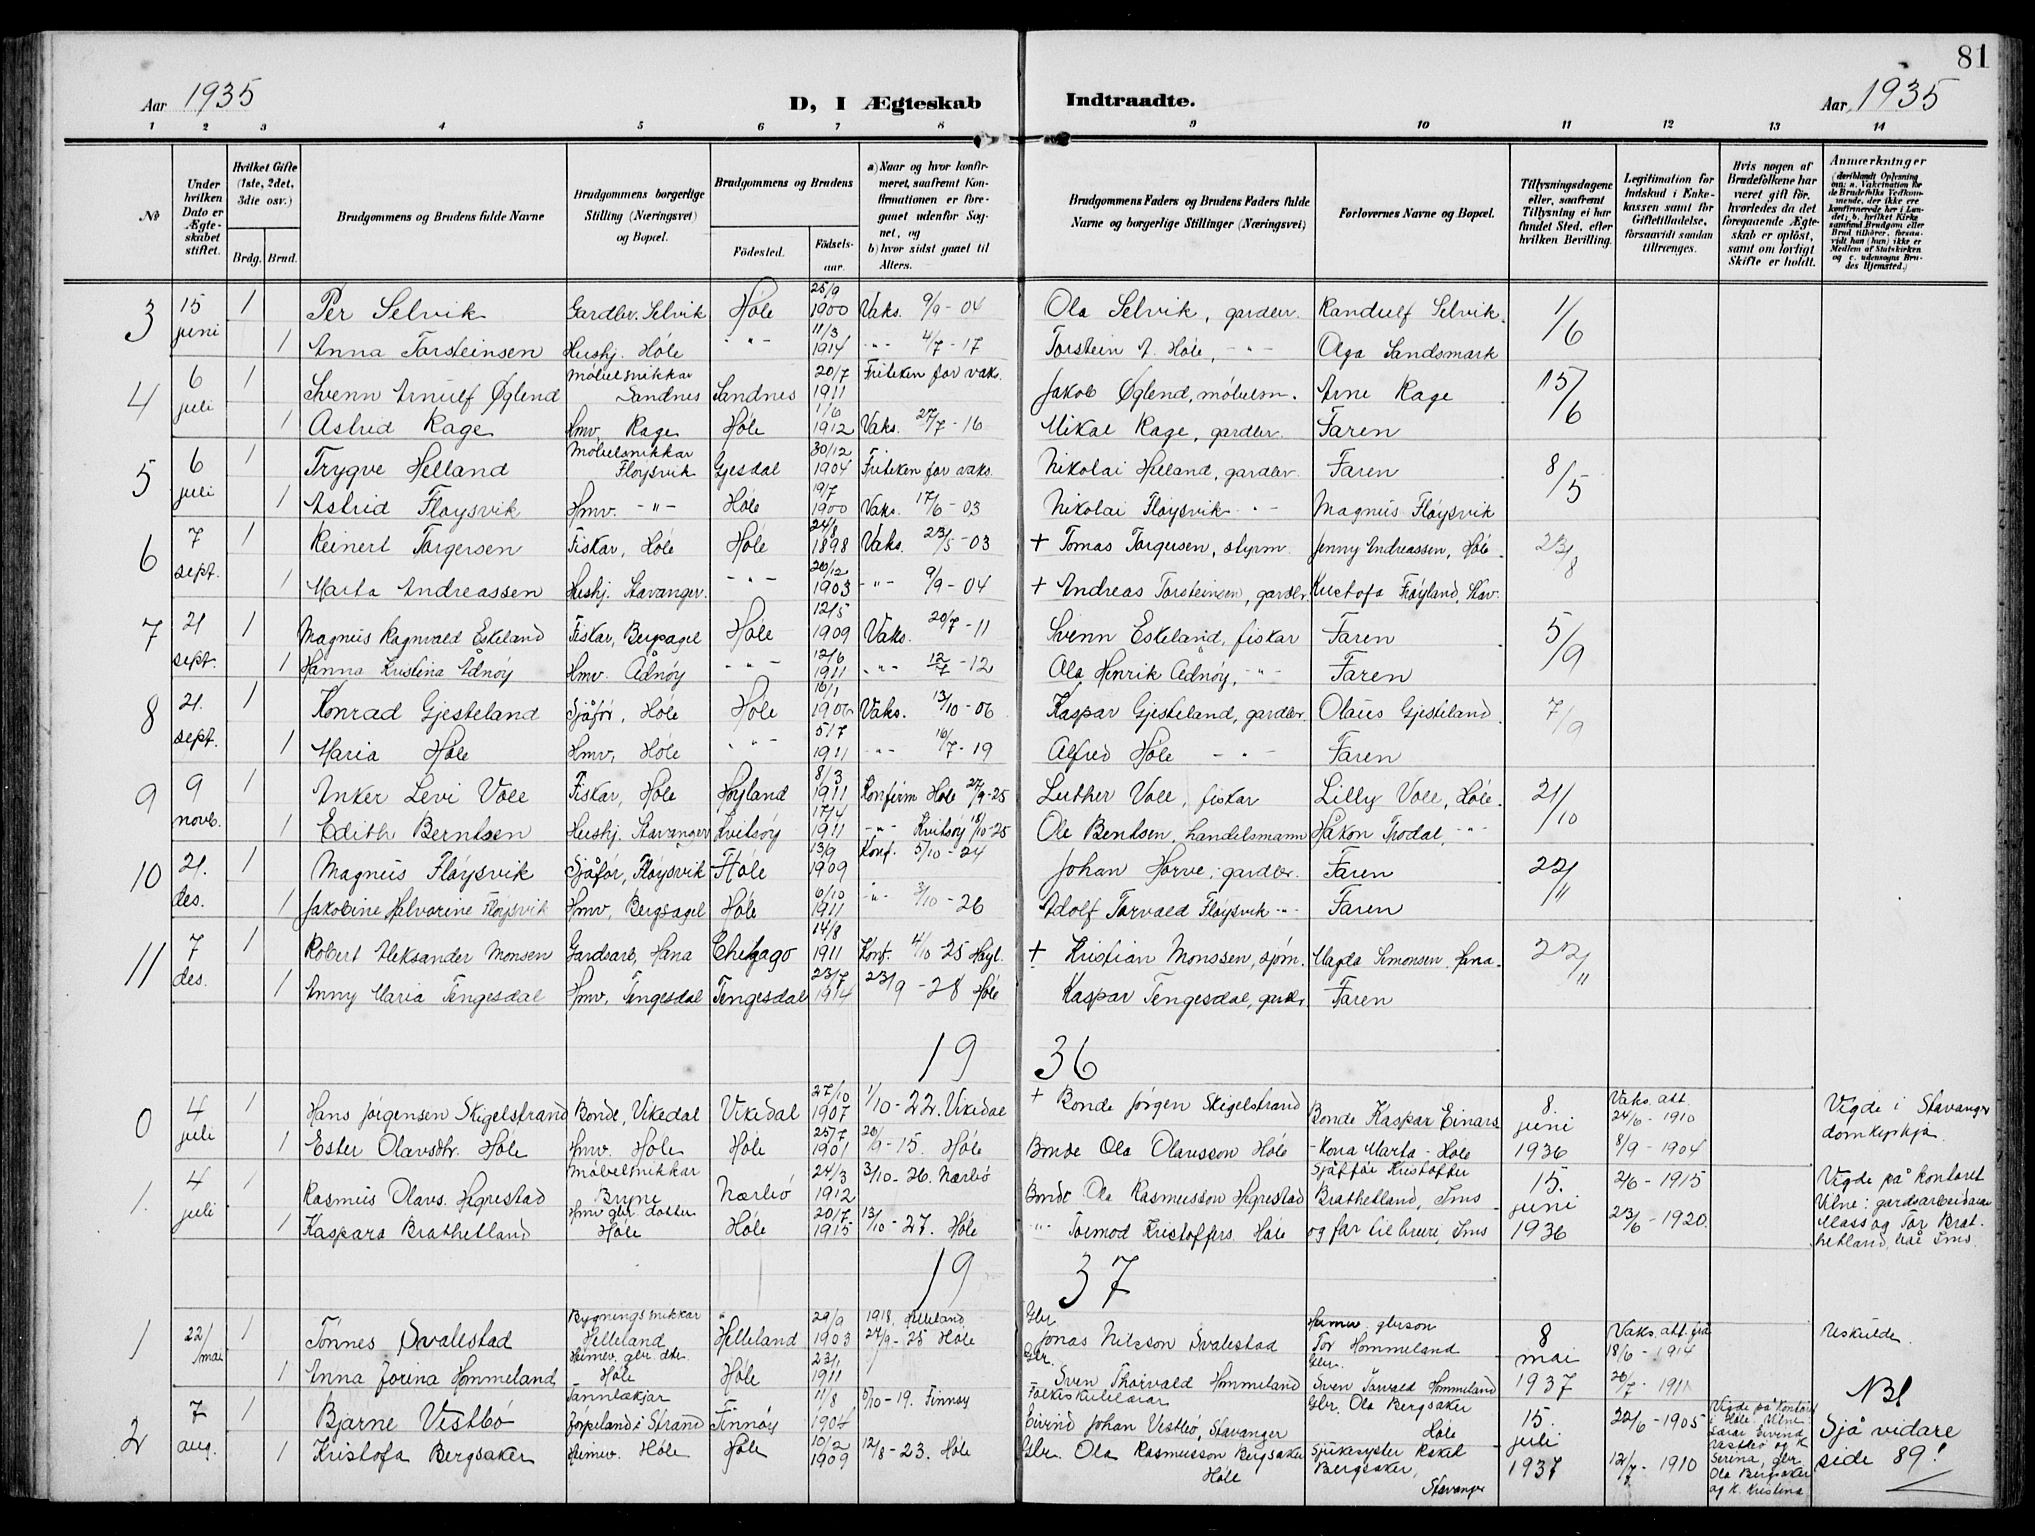 81
Aar 1935 D, I Ægteskab Indtraadte. Aar 1935
1 2 3 4 5 6 7 8 9 10 11 12 13 14
No
Under hvilken Dato er Ægteskabet stiftet.
Hvilket Gifte (1ste, 2det, 3die osv.)
Brdg. Brud.
Brudgommens og Brudens fulde Navne
Brudgommens borgerlige Stilling (Næringsvei) og Bopæl.
Brudgommens og Brudens
Födested. Födselsaar.
a) Naar og hvor konfirmeret, saafremt Konfirmationen er foregaaet udenfor Sognet, og
b) hvor sidst gaaet til Alters.
Brudgommens Faders og Brudens Faders fulde Navne og borgerlige Stillinger (Næringsvei)
Forlovernes Navne og Bopæl.
Tillysningsdagene eller, saafremt Tillysning ei har fundet Sted, efter hvilken Bevilling.
Legitimation for Indskud i Enkekassen samt for Giftetilladelse, forsaavidt saadan tiltrænges.
Hvis nogen af Brudefolkene har været gift før, hvorledes da det foregaaende Ægteskab er oplöst, samt om lovligt Skifte er holdt.
Anmærkninger (deriblandt Oplysning om: a. Vakcination for de Brudefolks Vedkommende, der ikke ere konfirmerede her i Landet; b. hvilket Kirkesamfund Brudgom eller Brud tilhører, forsaavidt han (hun) ikke er Medlem af Statskirken og c. udensogns Brudes Hjemsted.)
3 15 juni 1 Per Selvik Gardbr. Selvik Høle 25/9 1900 Vaks. 9/9 - 04 Ola Selvik, gardbr. Randulf Selvik. 1/6
1 Anna Torsteinsen Hushj. Høle - " - 11/3 1914 - " - 4/7 - 17 Torstein A. Høle, - " - Olga Sandsmark
4 6 juli 1 Svenn Arnulf Øglend Møbelsnikkar Sandnes Sandnes 20/7 1911 Friteken for vaks. Jakob Øglend, møbelsn. Arne Rage 15/6
1 Astrid Rage Hmv. Rage Høle 1/6 1912 Vaks. 27/7 - 16 Mikal Rage, gardbr. Faren
5 6 juli 1 Trygve Helland Møbelsnikkar Fløysvik Gjesdal 30/12 1904 Friteken for vaks. Nikolai Helland, gardbr. Faren 8/5
1 Astrid Fløysvik Hmv. - " - Høle 19/7 1900 Vaks. 17/6 - 03 Nikolai Fløysvik - " - Magnus Fløysvik
6 7 sept. 1 Reinert Torgersen Fiskar, Høle Høle 24/8 1898 Vaks. 23/5 - 03 + Tomas Torgersen, styrm. Jenny Andreassen, Høle 23/8
1 Marta Andreassen Hushj. Stavanger. - " - 20/12 1903 - " - 9/9 - 04 + Andreas Torsteinsen, gardbr. Kristofa Frøyland, Stav.
7 21 sept. 1 Magnus Ragnvald Eskeland Fiskar, Bergsagel Høle 12/5 1909 Vaks. 20/7 - 11 Svenn Eskeland, fiskar Faren 5/9
1 Hanna Kristina Ådnøy Hmv. Ådnøy - " - 12/6 1911 - " - 12/7 - 12 Ola Henrik Ådnøy, - " - Faren
8 21. sept. 1 Konrad Gjesteland Sjåfør, Høle Høle 16/1 1906 Vaks. 13/10 - 06 Kaspar Gjesteland, gardbr. Olaus Gjesteland 7/9
1 Maria Høle Hmv, Høle - " - 5/7 1911 - " - 16/7 - 19 Alfred Høle - " - Faren
9 9 novb. 1 Anker Levi Voll Fiskar, Høle Høyland 8/3 1911 Konfirm Høle 27/9 - 25 Luther Voll, fiskar Lilly Voll, Høle. 21/10
1 Edith Berntsen Hushj. Stavanger Kvitsøy 17/4 1911 - " - Kvitsøy 18/10 - 25 Ole Bentsen, handelsmann Håkon Trodal, - " -
10 21. des. 1 Magnus Fløysvik Sjåfør, Fløysvik Høle 13/9 1909 Konf. 5/10 - 24 Johan Horve, gardbr. Faren 22/11
1 Jakobine Halvorine Fløysvik Hmv, Bergsagel Høle 6/10 1911 - " - 3/10 - 26 Adolf Torvald Fløysvik - " - Faren
11 7 des. 1 Robert Aleksander Monsen Gardsarb, Hana Chikago 14/8 1911 Konf. 4/10 - 25 Høyl. + Kristian Monssen, sjøm. Magda Simonsen Hana 22/11
1 Anny Maria Tengesdal Hmv, Tengesdal Tengesdal 23/7 1914 23/9 - 28 Høle Kaspar Tengesdal, gardbr Faren
19 36
0 4 juli 1 Hans Jørgensen Skigelstrand Bonde, Vikedal Vikedal 27/10 1907 1/10 - 22. Vikedal + Bonde Jørgen Skigelstrand Bonde Kaspar Einars 8. juni Vaks. att. 24/6 - 1910 Vigde i Stavanger domkyrkja.
1 Ester Olavsdtr. Høle Hmv. Høle Høle 25/7 1901 20/9 - 15. Høle Bonde Ola Olavsson Høle - Kona Marta - Høle 1936 8/9 - 1904
1. 4 juli 1 Rasmus Olavs. Hegrestad Møbelsnikkar Bryne Nærbø 24/3 1912 3/10 - 26. Nærbø Bonde Ola Rasmusson Hegrestad Sjåffør Kristoffer Brathetland, Ims 15. juni 2/6 - 1915 Vigde på kontoret Vitne: gardsarbeidarar Mass og Tor Brathetland, båe Ims.
1 Kaspara Brathetland Hmv gbr. dotter Høle Høle 20/7 1915 13/10 - 27. Høle - " - Tormod Kristoffers. Høle og far til brura, Ims 1936 23/6 - 1920.
19 37
1 22/mai 1 Tønnes Svalestad Bygningssnikkar Helleland Helleland 29/9 1903 1918, Helleland Gbr. Jonas Nilsson Svalestad Heimev. gbrson Tor Hommeland 8 mai Vaks. att. frå 18/6 - 1914 Uskulde.
1 Anna Jorina Hommeland Heimev. gbr. dtr. Høle Høle 23/1 1911 24/9 - 25 Høle Gbr. Sven Thorvald Hommeland Gbr. Sven Torvald Hommeland 1937 20/7 - 1911
2 7 aug. 1 Bjarne Vestbø Tannlækjar Jørpeland i Strand Finnøy 11/8 1904 5/10 - 19. Finnøy Folkeskulelærar Eivind Johan Vestbø, Stavanger Gbr. Ola Bergsaker Høle 15. juli 22/6 - 1905 Vigde på kontoret i Høle. Vitne: Lærar Eivind Vestbø og k. Serena, gbr. Ola Bergsaker og k. Kristina NB! Sjå vidare side 89!
1 Kristofa Bergsaker Heimev. Høle Høle 10/2 1909 12/8 - 23. Høle Gbr. Ola Rasmusson Bergsaker Høle Sjukesyster Rakel Bergsaker, Stavanger 1937 12/7 - 1910